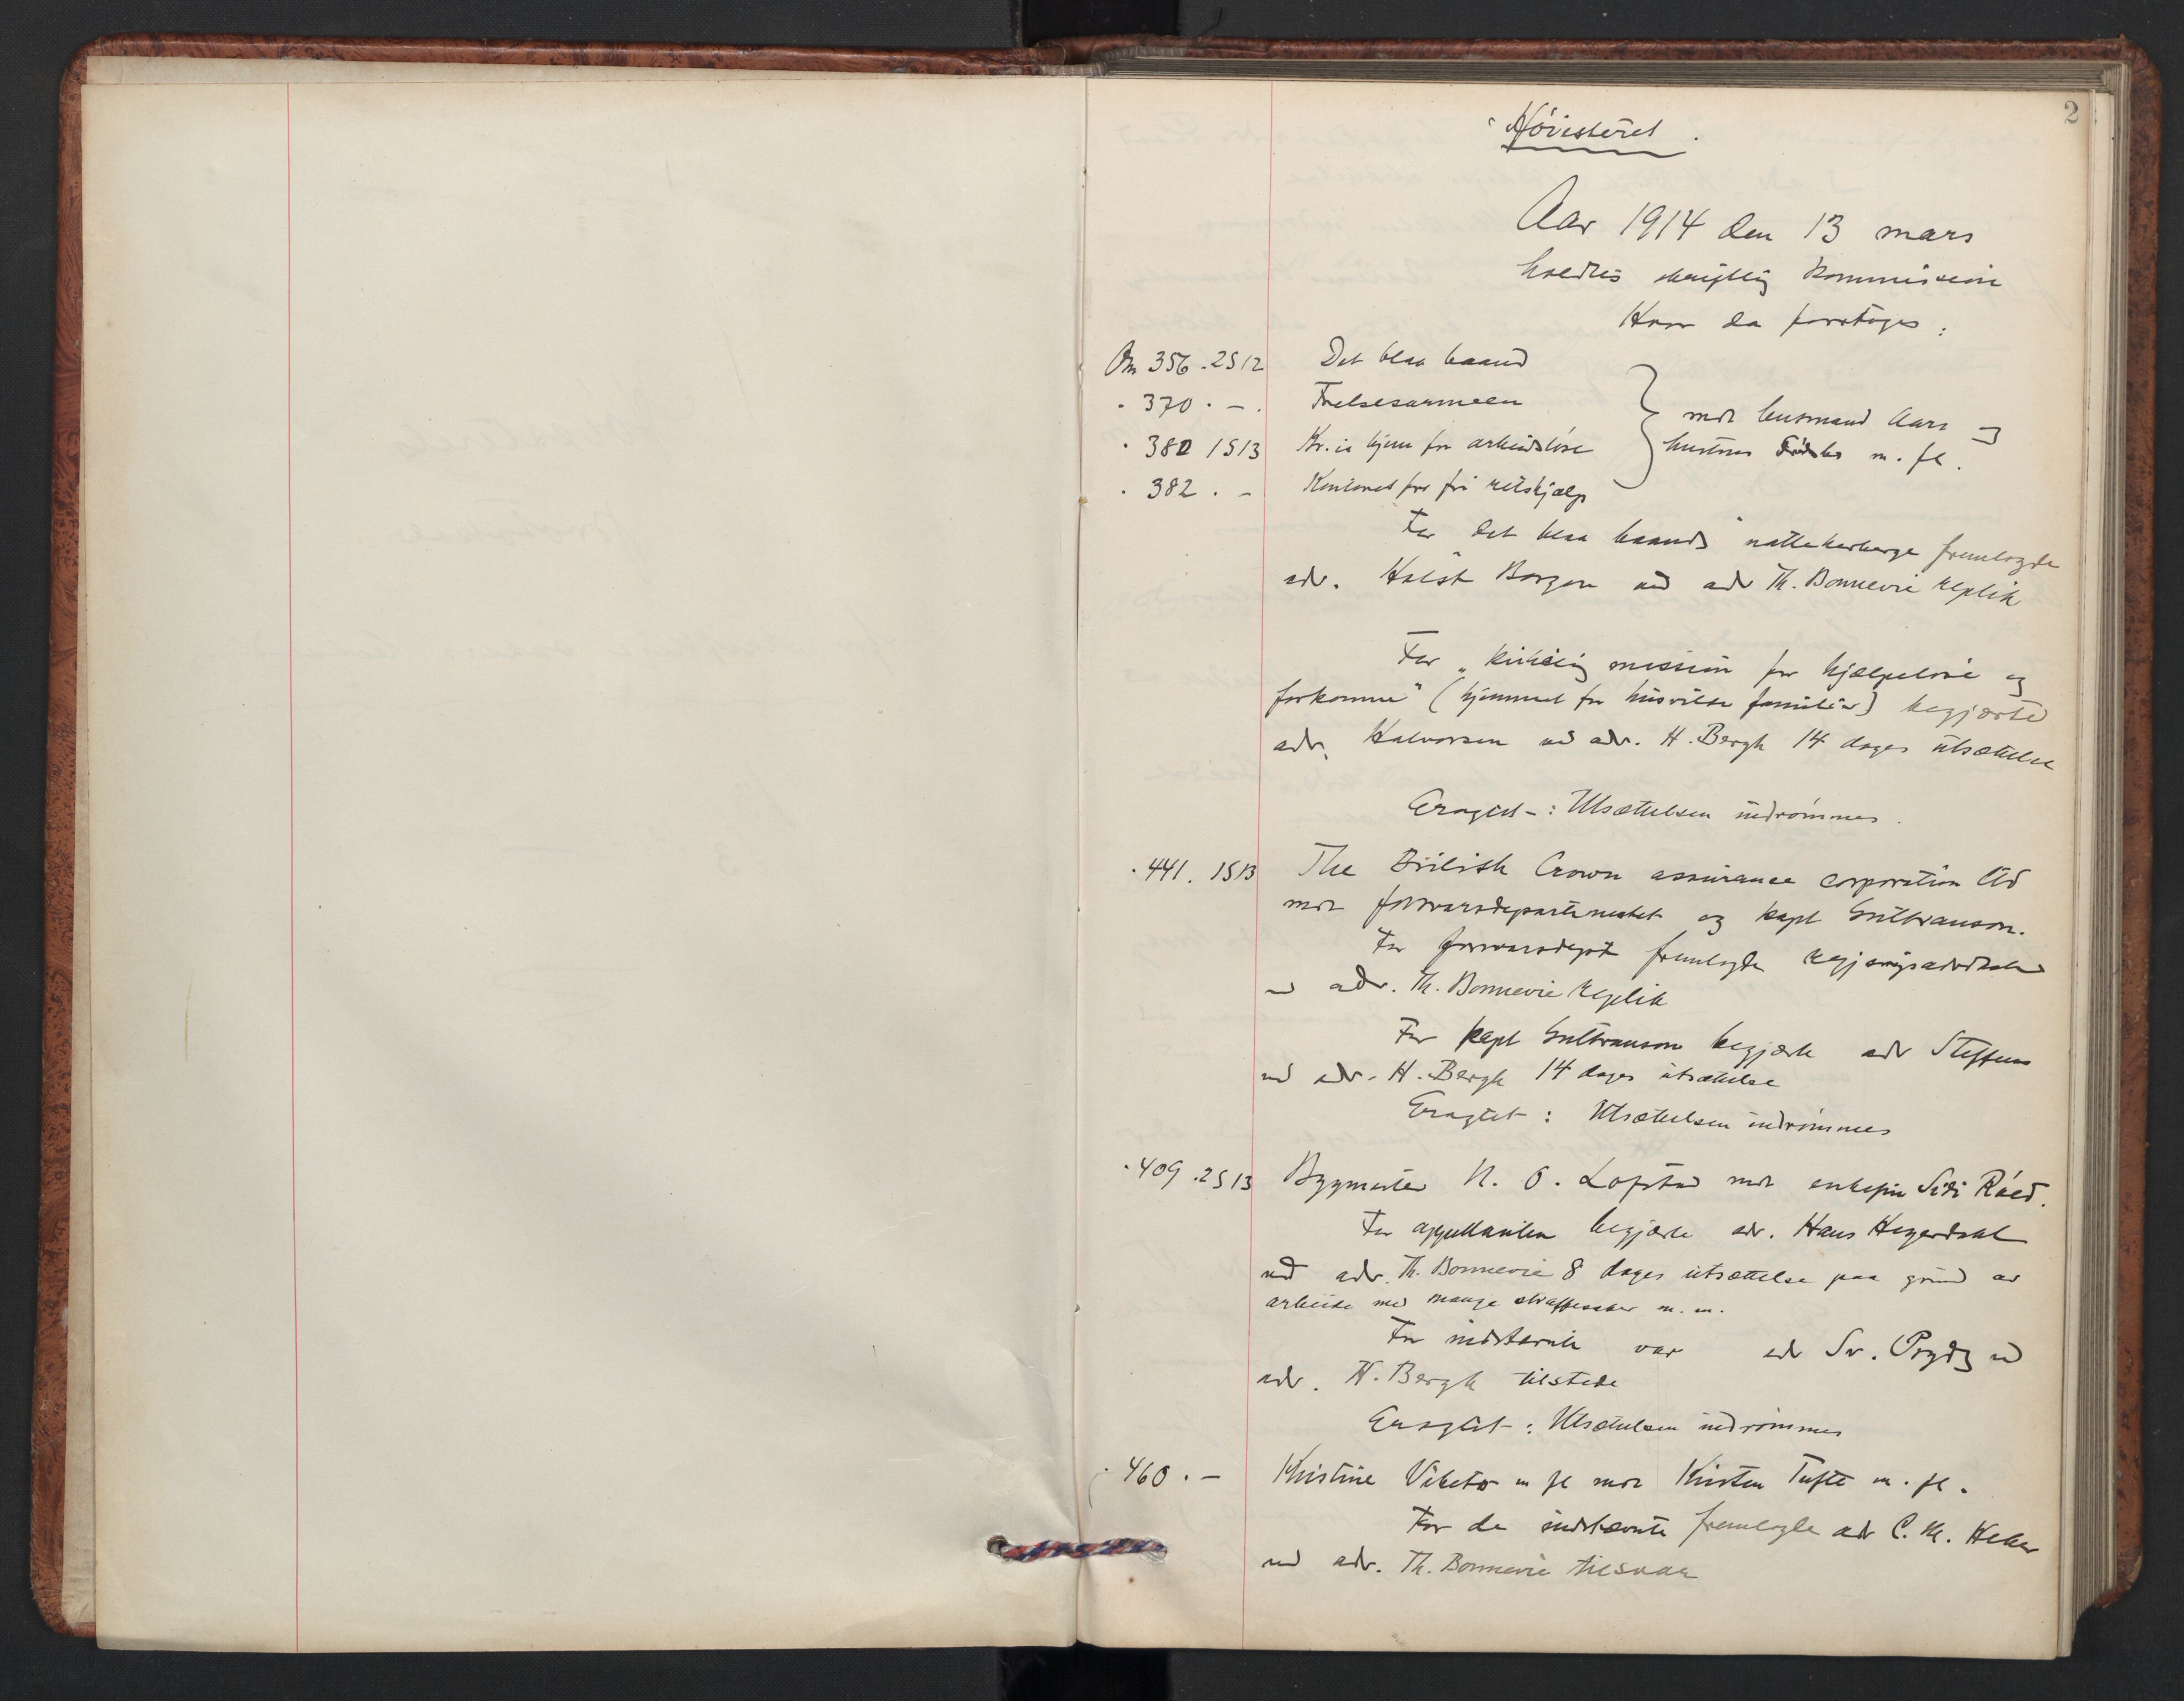 2
Høiesteret.
Aar 1914 den 13 mars
holdtes skriftlig kommission
Hvor da foretoges:
Nr 356. 2S12 Det blaa baand
" 370. – Frelsesarmeen
" 380 1S13 Kr.ia hjem for arbeidsløse
" 382. – Kontoret for fri retshjælp
mot husmand Aars og
hustru m. fl.
For Det blaa baands natteherberge fremlagde
adv. Holst Borgen ved adv Th. Bonnevie replik
For „kirkelig mission for hjælpeløse og
forkomne" (hjemmet for husvilde familier) begjærte
adv. Halvorsen ved adv. H. Bergh 14 dages utsættelse
Eragtet: Utsættelsen indrømmes.
" 441. 1S13 The British Crown assurance corporation Ltd
mot forsvarsdepartementet og kapt Gulbranson.
For forsvarsdept fremlagde regjeringsadvokaten
ved adv. Th. Bonnevie replik
For kapt Gulbranson begjærte adv Steffens
ved adv. H. Bergh 14 dages utsættelse
Eragtet: Utsættelsen indrømmes
" 409. 2S13 Bygmester N. O. Lofstad mot enkefru Sidi Råed.
For appellanten begjærte adv. Hans Heyerdahl
ved adv. Th. Bonnevie 8 dages utsættelse paa grund av
arbeide med mange straffesaker m. m.
For indstevnte var adv Sv. Prydz ved
adv. H. Bergh tilstede
Eragtet: Utsættelsen indrømmes
" 460. – Kristine Vibeto m fl mot Kirsten Tufte m. fl.
For de indstevnte fremlagde adv C. M. Heber
ved adv. Th. Bonnevie tilsvar